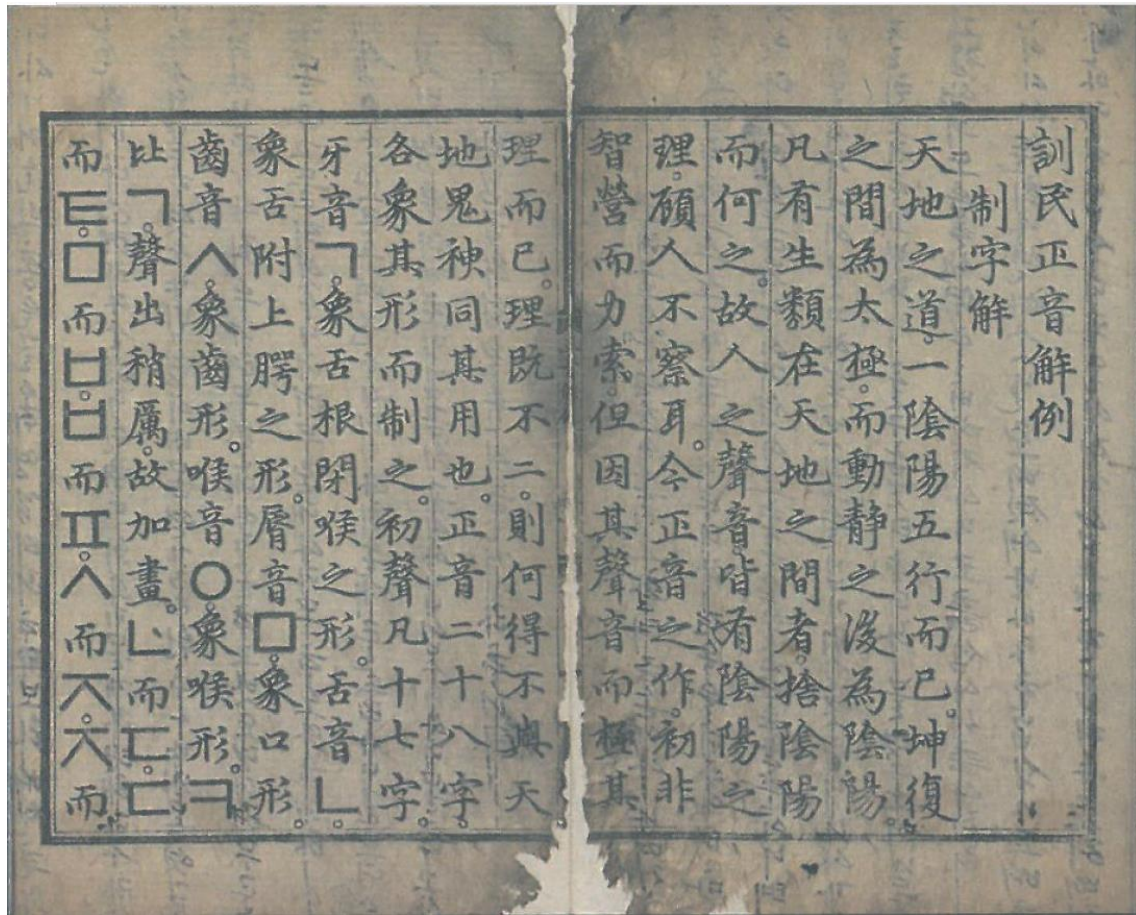 訓民正音解例
制字解
天地之道。一陰陽五行而已。坤復
之間為太極。而動静之後為陰陽。
凡有生類在天地之間者。捨陰陽
而何之。故人之聲音。皆有陰陽之
理。顧人不察耳。今正音之作。初非
智營而力索。但因其聲音而極其
理而已。理既不二。則何得不與天
地鬼神同其用也。正音二十八字。
各象其形而制之。初聲凡十七字。
牙音ㄱ。象舌根閉喉之形。舌音ㄴ。
象舌附上腭之形。脣音ㅁ。象口形。
齒音ㅅ。象齒形。喉音ㅇ。象喉形。ㅋ
比ㄱ。聲出稍厲。故加畫。ㄴ而ㄷ。ㄷ
而ㅌ。ㅁ而ㅂ。ㅂ而ㅍ。ㅅ而ㅈ。ㅈ而